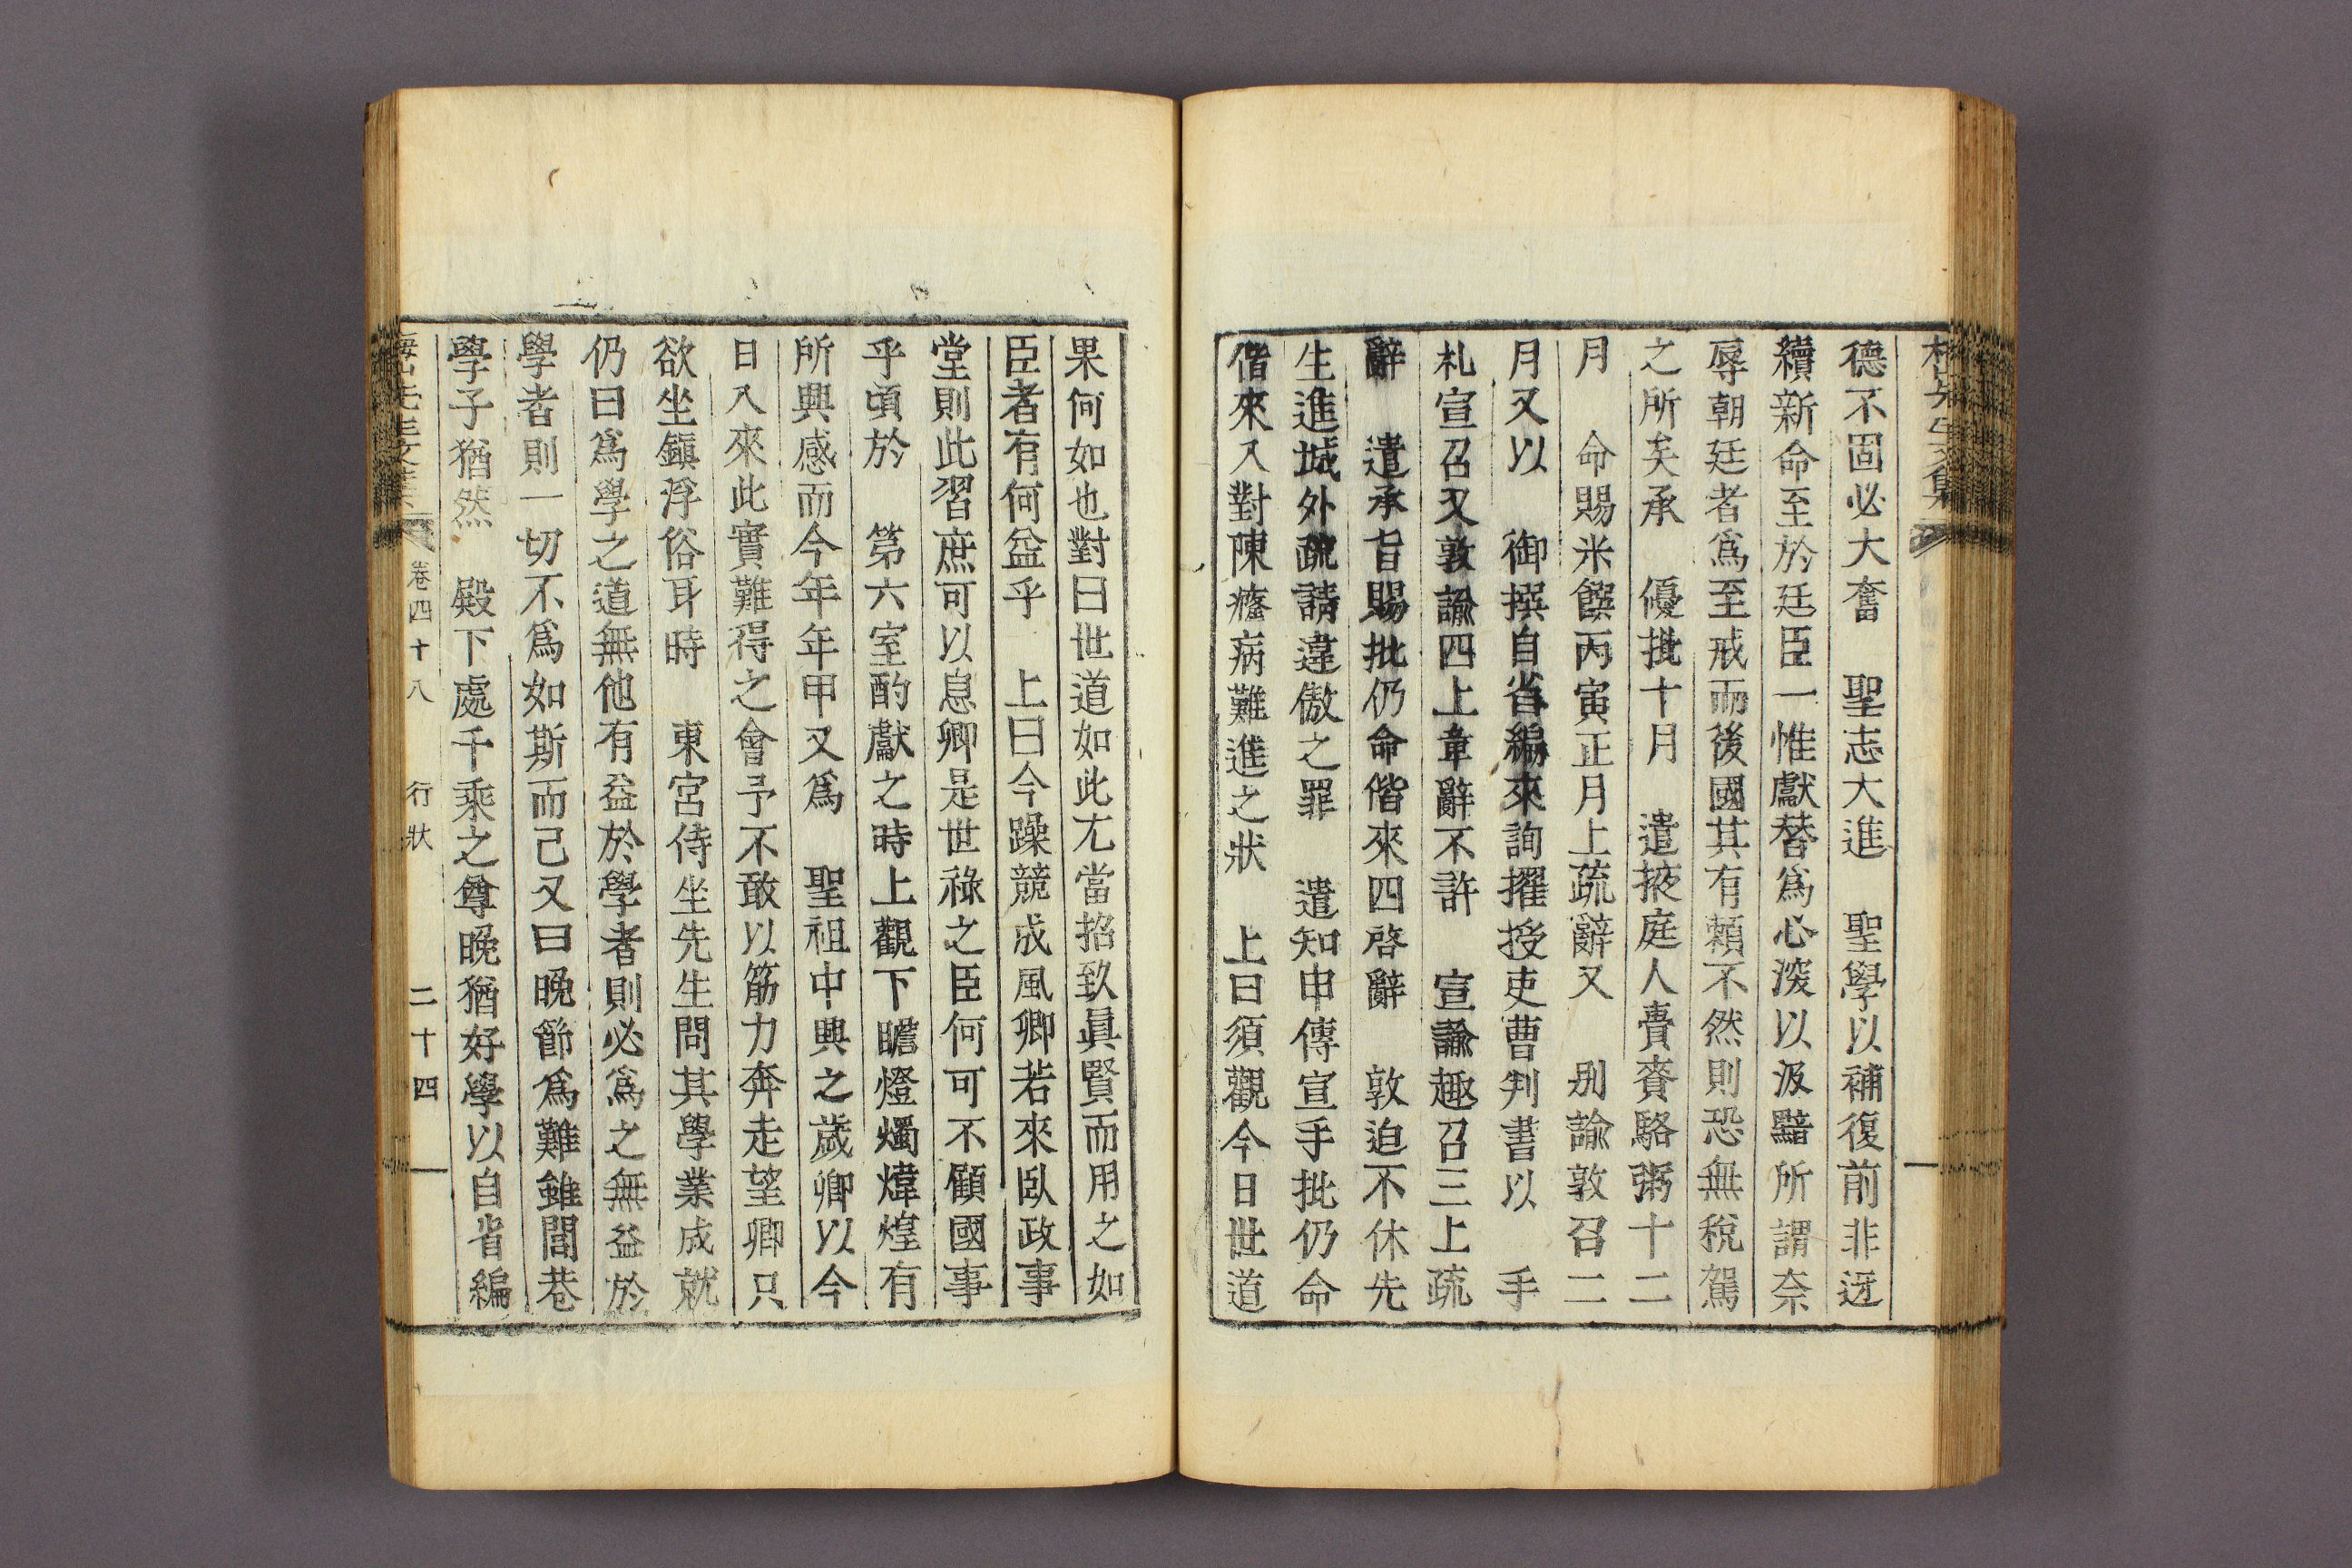 德不固必大奮　聖志大進　聖學以補復前非迓
續新命至於廷臣一惟獻替爲心深以汲黯所謂奈
辱朝廷者爲至戒而後國其有賴不然則恐無稅駕
之所矣承　優批十月　遣掖庭人賫賚駱粥十二
月　命賜米饌丙寅正月上疏辭又　別諭敦召二
月又以　御撰自省編來詢擢授吏曹判書以　手
札宣召又敦諭四上章辭不許　宣諭趣召三上疏
辭　遣承旨賜批仍命偕來四啓辭　敦迫不休先
生進城外疏請違傲之罪　遣知申傳宣手批仍命
偕來入對陳癃病難進之狀　上曰須觀今日世道
果何如也對曰世道如此尤當招致眞賢而用之如
臣者有何益乎　上曰今躁競成風卿若來臥政事
堂則此習庶可以息卿是世祿之臣何可不顧國事
乎頃於　第六室酌獻之時上觀下瞻燈燭煒煌有
所興感而今年年甲又爲　聖祖中興之歲卿以今
日入來此實難得之會予不敢以筋力奔走望卿只
欲坐鎭浮俗耳時　東宮侍坐先生問其學業成就
仍曰爲學之道無他有益於學者則必爲之無益於
學者則一切不爲如斯而已又曰晚節爲難雖閭巷
學子猶然　殿下處千乘之尊晚猶好學以自省編
先生文集 卷四十八　行狀　二十四